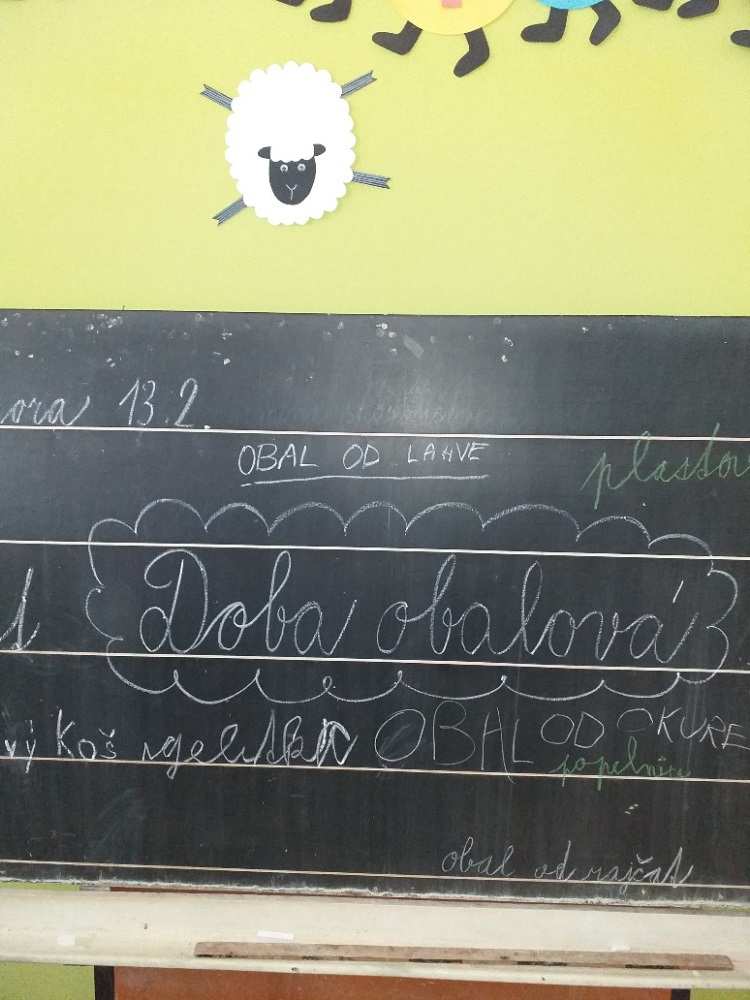 ora 13.2.
OBAL OD LAHVE
plastov
Doba obalová
vý Koš OBAL OD OKURE
popelnice
obal od rajčat